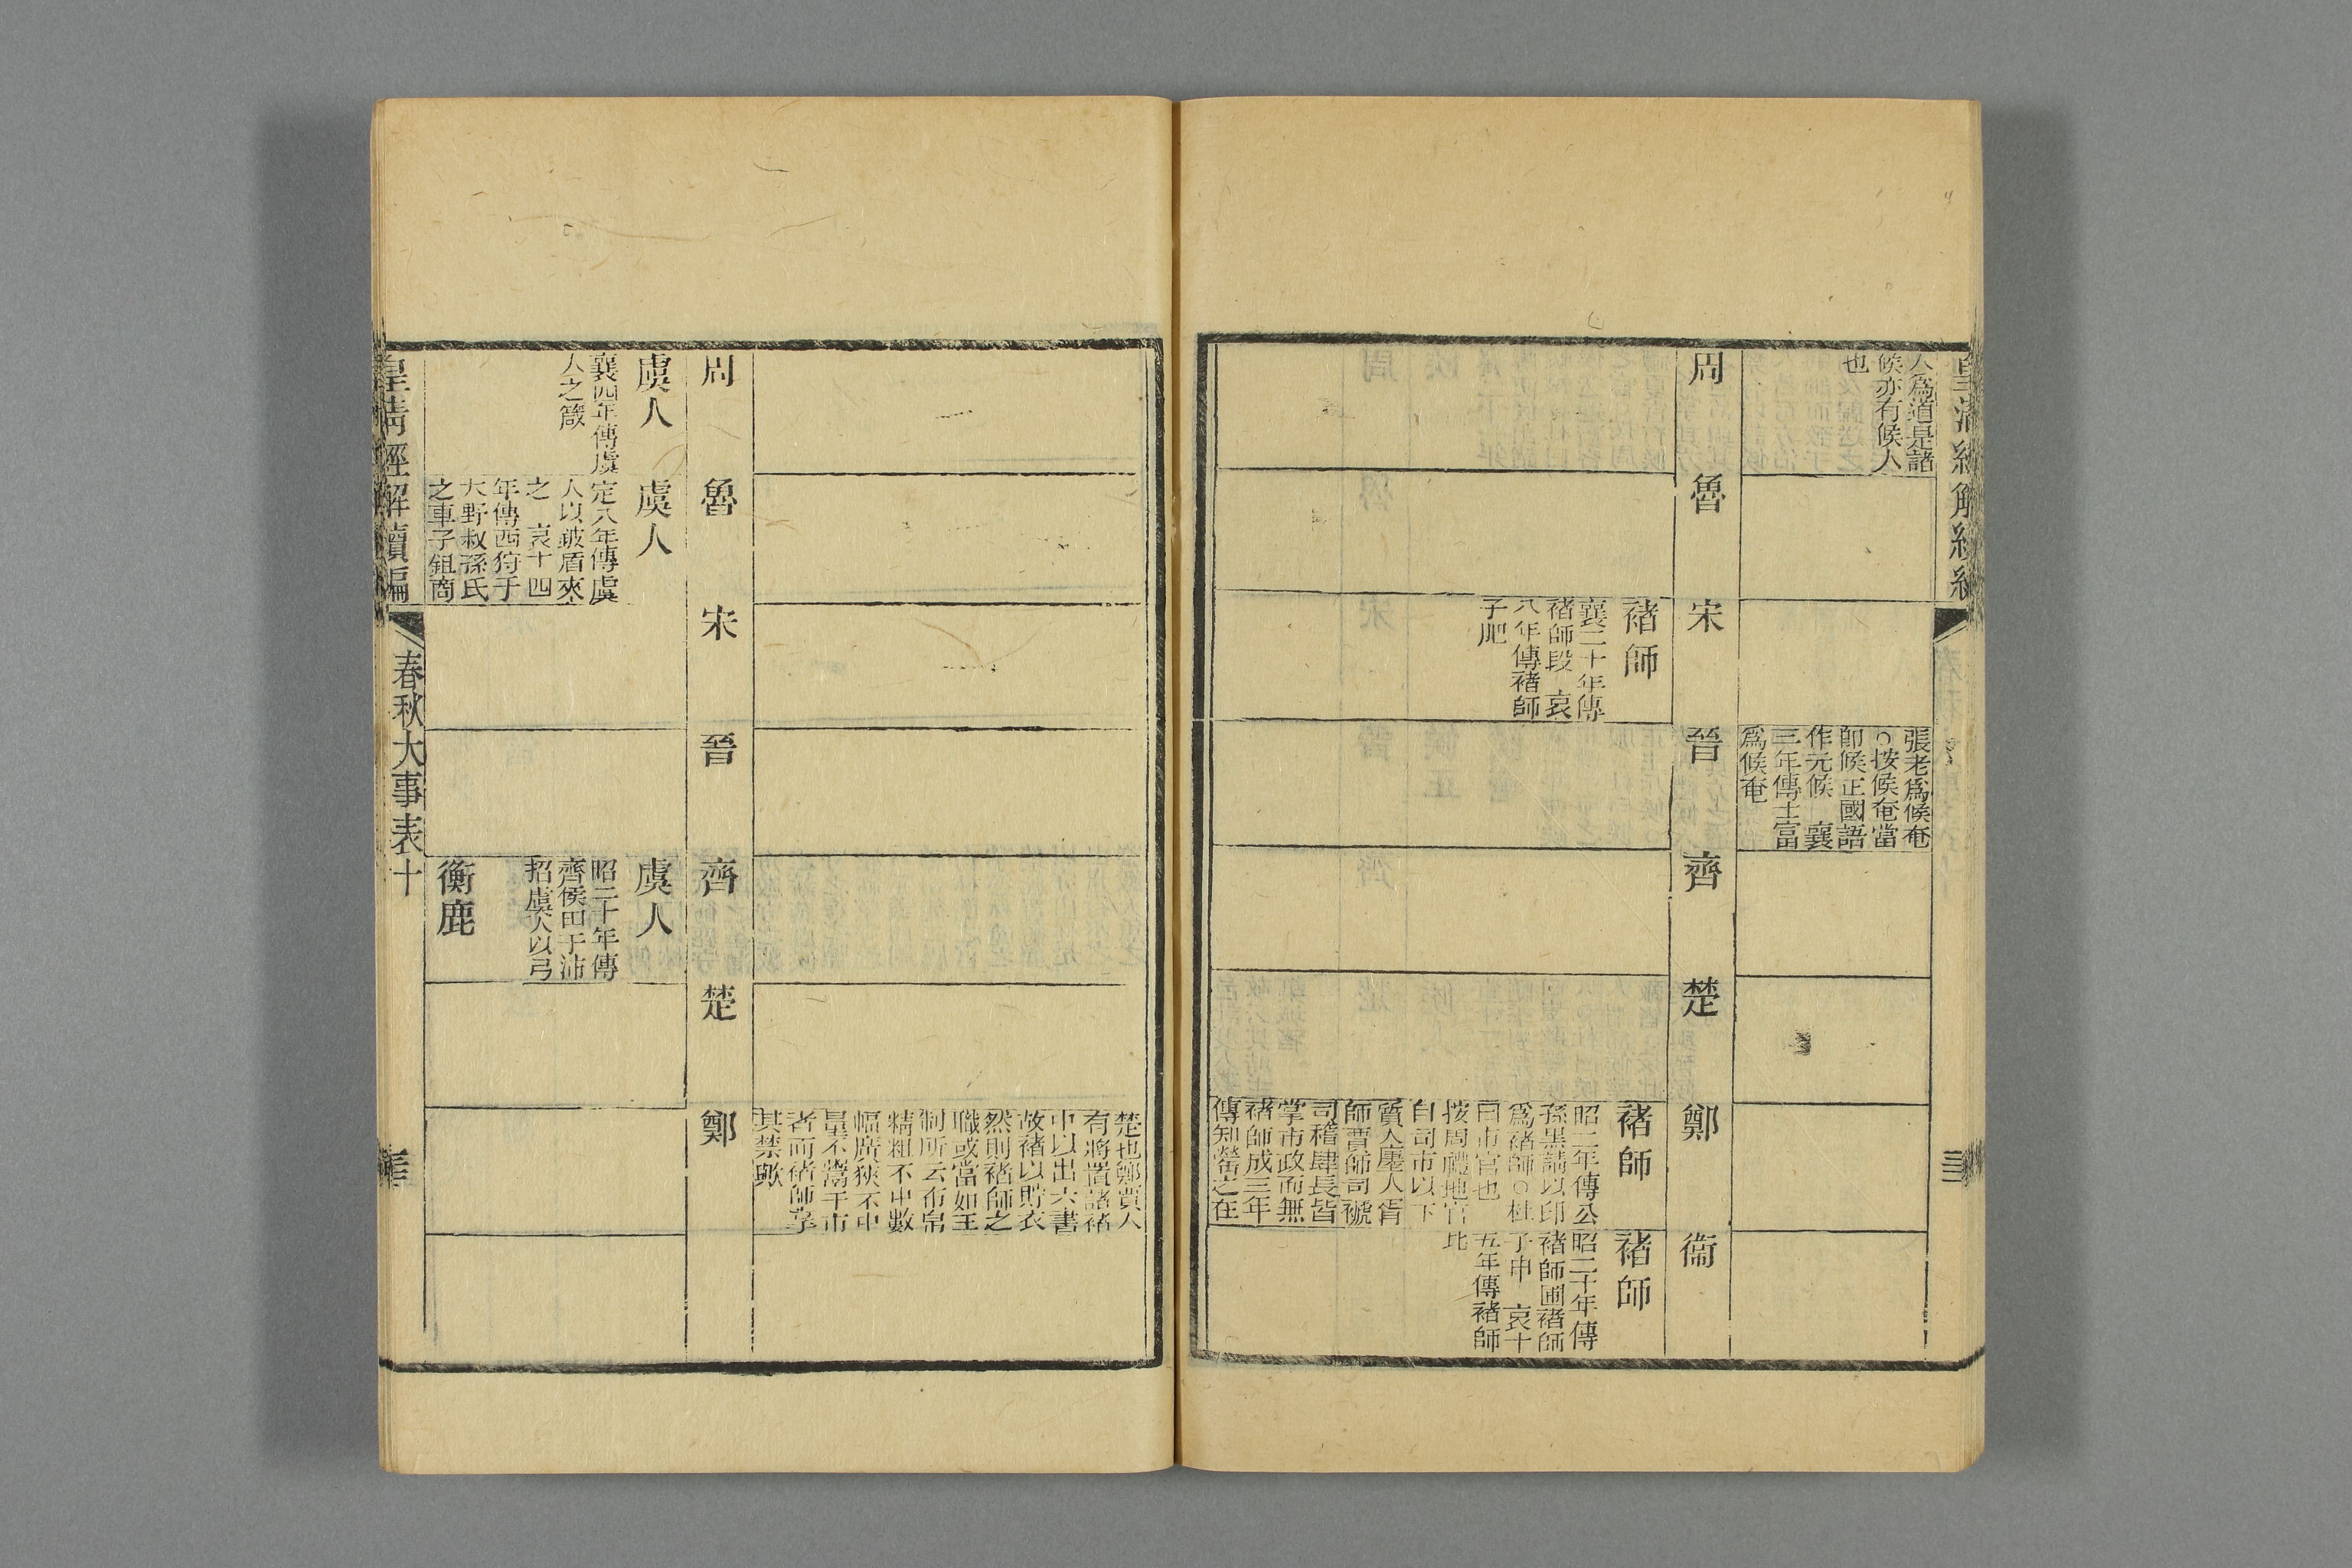 人爲道是諸
候亦有候人
也
張老爲候奄
○按候奄當
卽候正國語
作元候　襄
三年傳士富
爲候奄
周
魯
宋
晉
齊
楚
鄭
衞
褚師
襄二十年傳
褚師段　哀
八年傳褚師
子肥
褚師
昭二年傳公
孫黑請以印
爲褚師○杜
曰市官也
按周禮地官
自司市以下
質人廛人胥
師賈師司虣
司稽肆長皆
掌市政而無
褚師成三年
傳知罃之在
褚師
昭二十年傳
褚師圃褚師
子申　哀十
五年傳褚師
比
楚也鄭賈人
有將置諸褚
中以出六書
故褚以貯衣
然則褚師之
職或當如王
制所云布帛
精粗不中數
幅廣狹不中
量不鬻于市
者而褚師掌
其禁歟
周
魯
宋
晉
齊
楚
鄭
虞人
襄四年傳虞
人之箴
虞人
定八年傳虞
人以鈹盾夾
之　哀十四
年傳西狩于
大野叔孫氏
之車子鉏商
虞人
昭二十年傳
齊侯田于沛
招虞人以弓
衡鹿
皇清經解續編
春秋大事表十